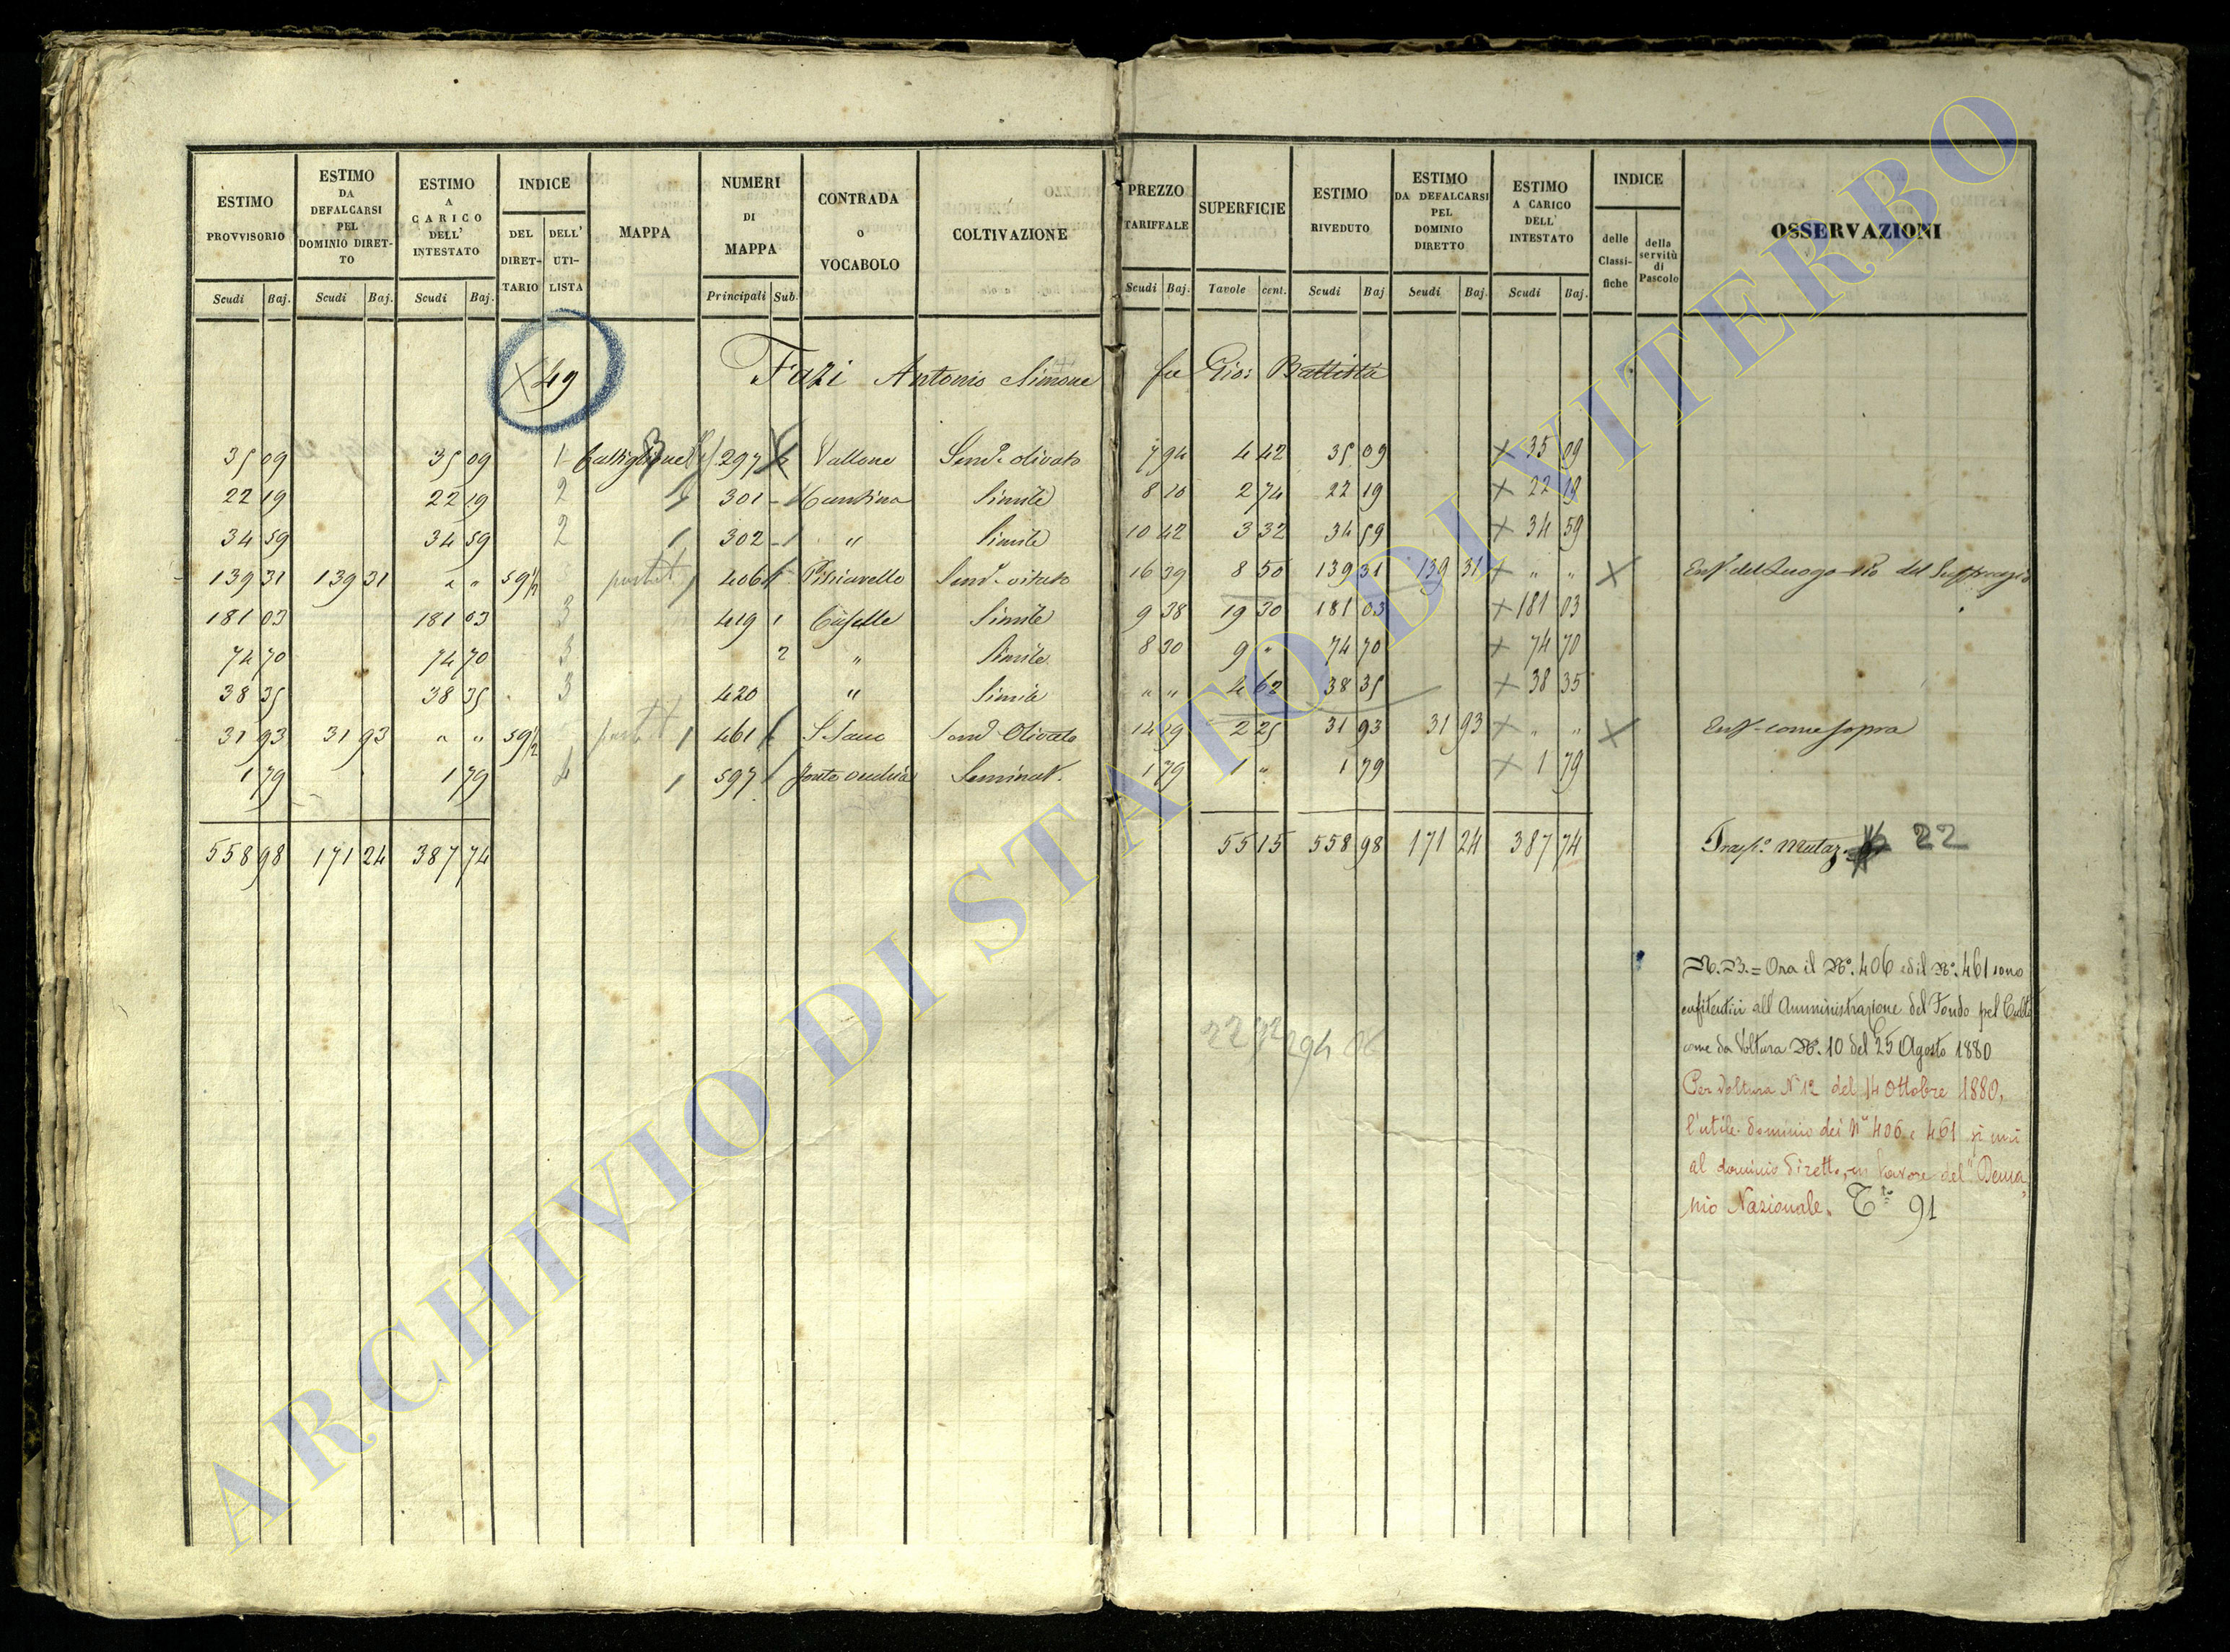 ESTIMO PROVVISORIO | ESTIMO DA DEFALCARSI PEL DOMINIO DIRETTO | ESTIMO A CARICO DELL' INTESTATO | INDICE | MAPPA | NUMERI DI MAPPA | CONTRADA O VOCABOLO | COLTIVAZIONE | PREZZO TARIFFALE | SUPERFICIE | ESTIMO RIVEDUTO | ESTIMO DA DEFALCARSI PEL DOMINIO DIRETTO | ESTIMO A CARICO DELL' INTESTATO | INDICE | OSSERVAZIONI
DEL DIRETTARIO | DELL' UTILISTA | delle Classifiche | della servitù di Pascolo
Scudi | Baj. | Scudi | Baj. | Scudi | Baj. | Principali | Sub. | Scudi | Baj. | Tavole | cent. | Scudi | Baj | Scudi | Baj. | Scudi | Baj.
49 Fazi Antonio Simone fu Gio: Battista
35 09 | 35 09 | 1 | 297 | Vallone | Sem.o olivato | 7 94 | 4 42 | 35 09 | 35 09
22 19 | 22 19 | 2 | 301 | Cantina | Simile | 8 10 | 2 74 | 22 19 | 22 19
34 59 | 34 59 | 2 | 302 | " | Simile | 10 42 | 3 32 | 34 59 | 34 59
139 31 | 139 31 | " " | 59 1/2 | 406 | Sem.o vitato | 16 39 | 8 50 | 139 31 | 139 31 | " " | Enf. del Luogo Pio del Suffragio
181 03 | 181 03 | 3 | 419 | 1 | Caselle | Simile | 9 38 | 19 30 | 181 03 | 181 03
74 70 | 74 70 | 3 | 2 | " | Simile | 8 30 | 9 " | 74 70 | 74 70
38 35 | 38 35 | 3 | 420 | " | Simile | " " | 4 62 | 38 35 | 38 35
31 93 | 31 93 | " " | 59 1/2 | 461 | Sem.o Olivato | 14 19 | 2 25 | 31 93 | 31 93 | " " | Enf. come sopra
1 79 | 1 79 | 4 | 597 | Seminat. | 1 79 | 1 " | 1 79 | 1 79
558 98 | 171 24 | 387 74 | 55 15 | 558 98 | 171 24 | 387 74 | Trasp.o Mutaz. 22
N.B. = Ora il N.o 406 ed il N.o 461 sono
enfiteutici all'Amministrazione del Fondo pel Culto
come da Voltura N.o 10 del 25 Agosto 1880
Per voltura N 12 del 14 Ottobre 1880,
l'utile dominio dei N.i 406 e 461 si unì
al dominio diretto, in favore del "Dema
nio Nazionale. T.to 91
ARCHIVIO DI STATO DI VITERBO